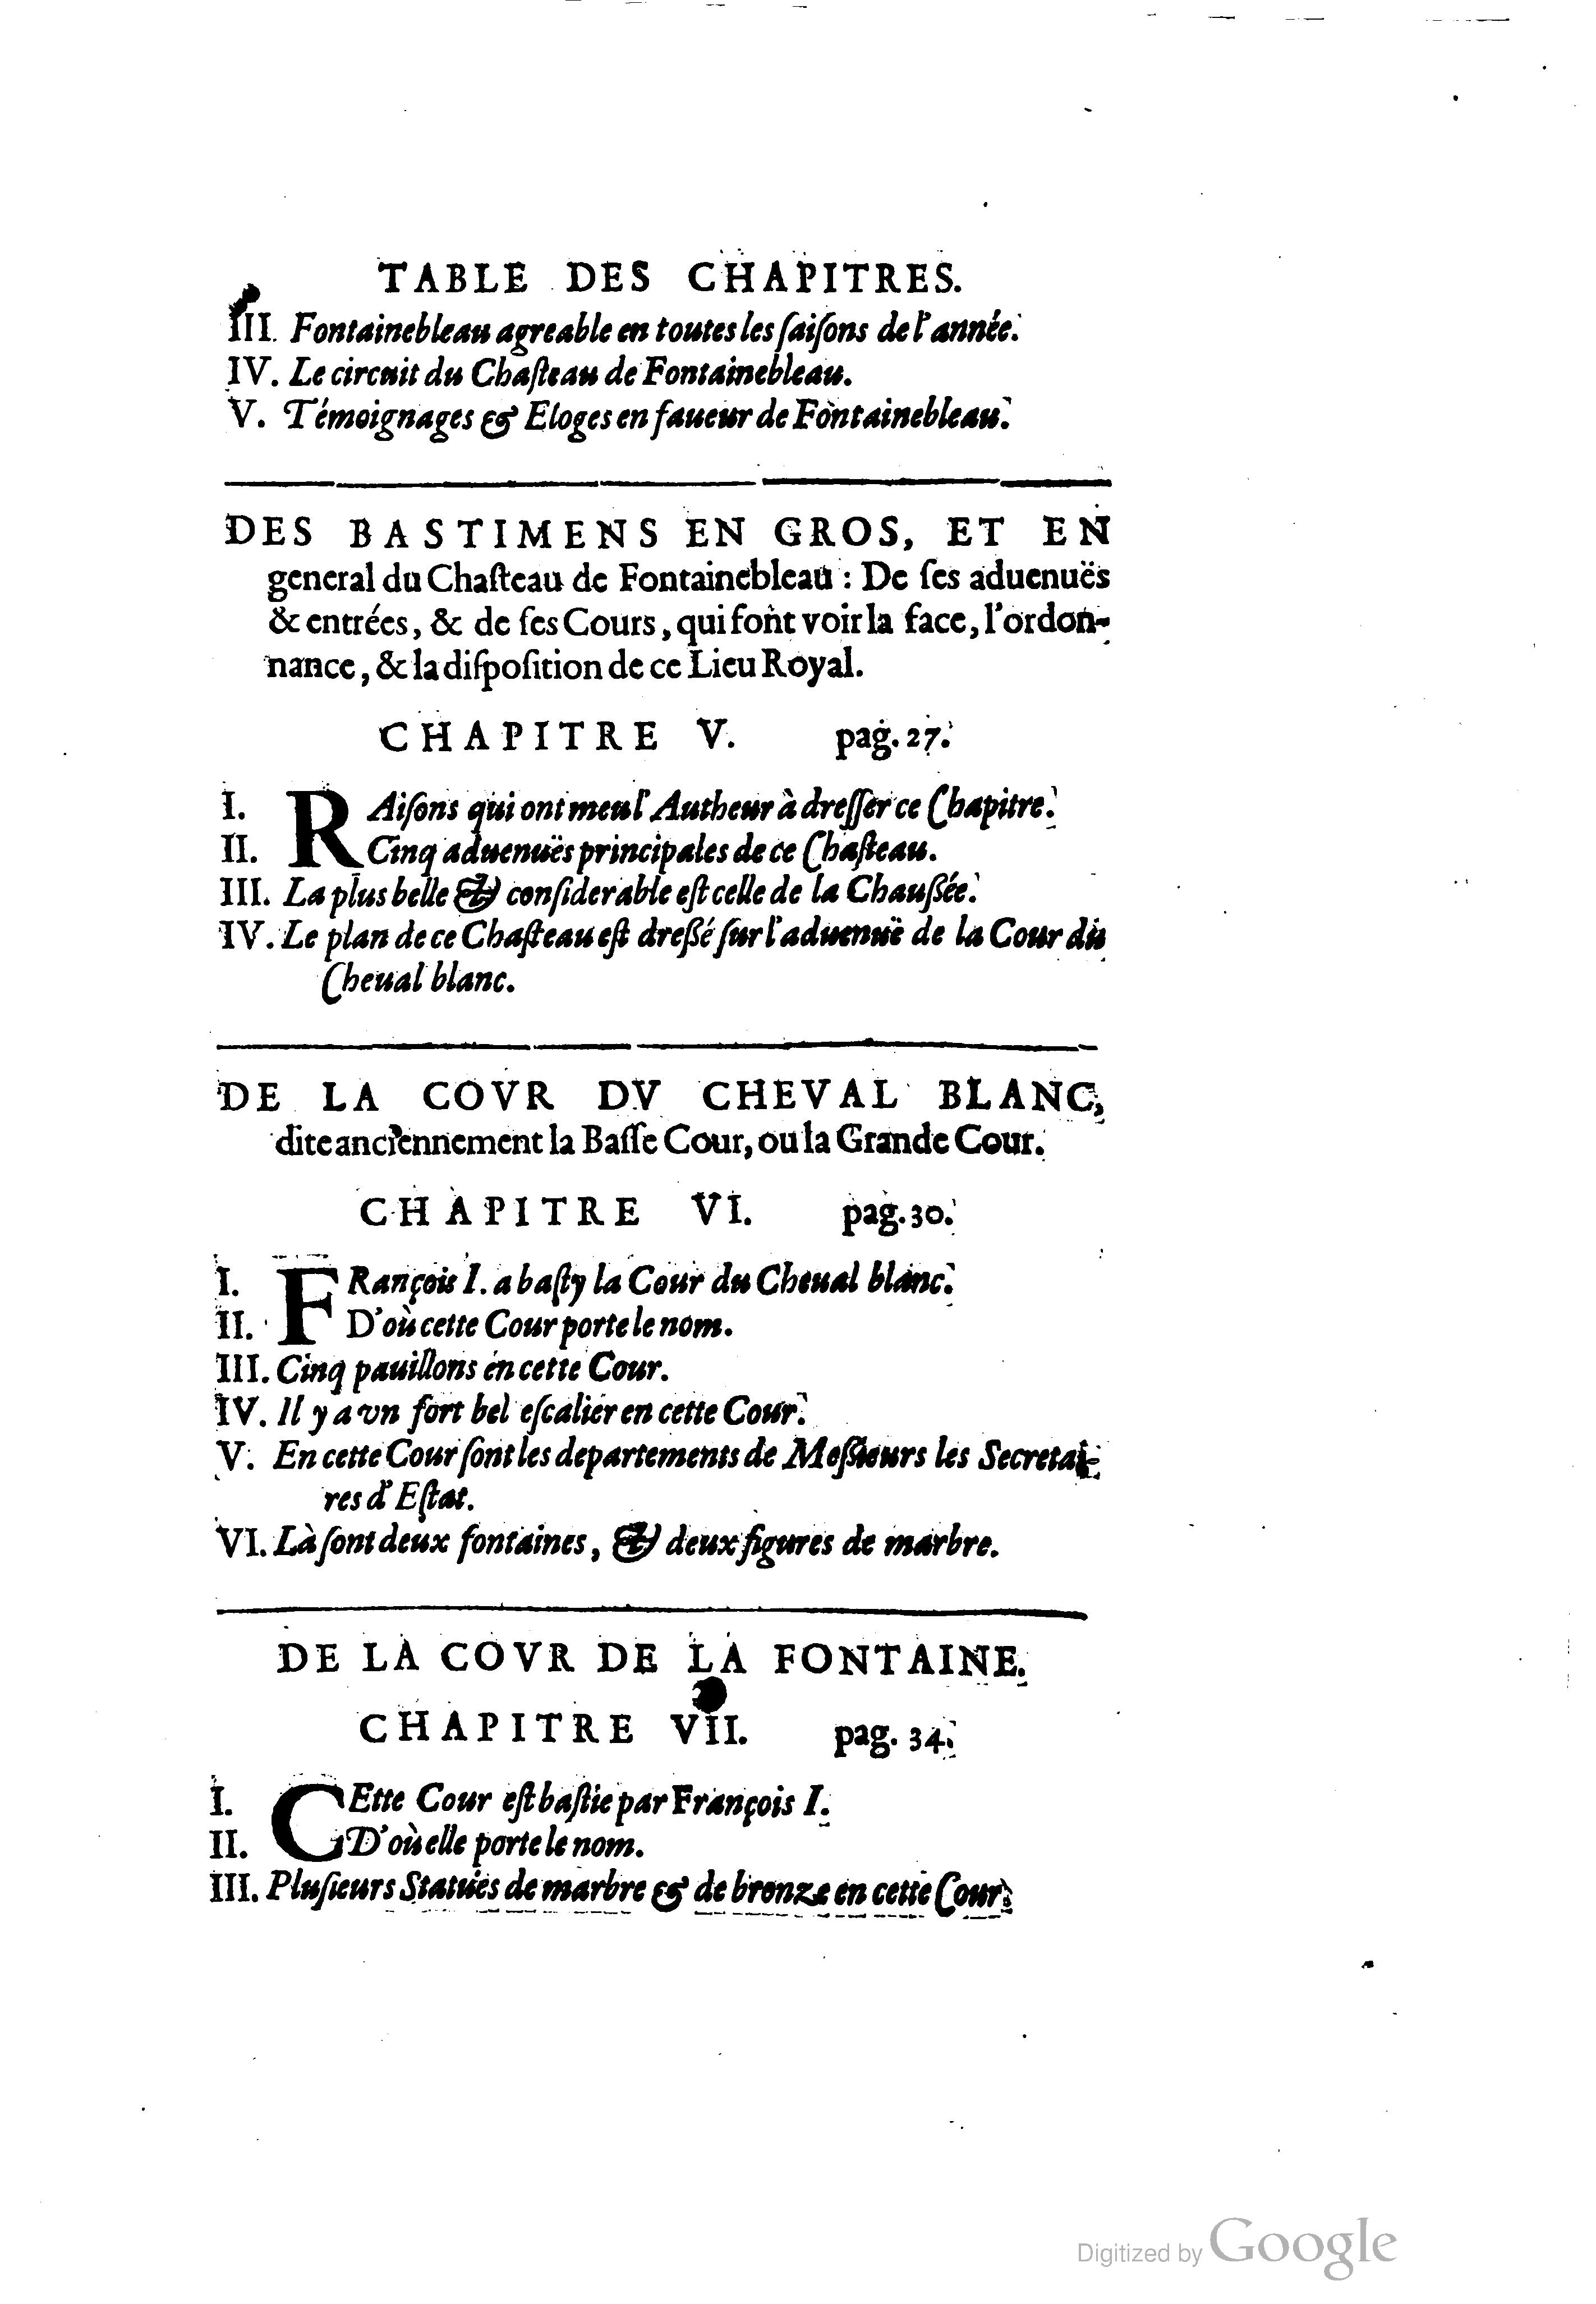 TABLE DES CHAPITRES.
III. Fontainebleau agreable en toutes les ſaiſons de l'année.
IV. Le circuit du Chaſteau de Fontainebleau.
V. Témoignages & Eloges en faueur de Fontainebleau.
DES BASTIMENS EN GROS, ET EN
general du Chaſteau de Fontainebleau : De ſes aduenuës
& entrées, & de ſes Cours, qui font voir la face, l'ordon-
nance, & la diſpoſition de ce Lieu Royal.
CHAPITRE V. pag. 27.
I. RAiſons qui ont meu l'Autheur à dreſſer ce Chapitre.
II. Cinq aduenuës principales de ce Chaſteau.
III. La plus belle & conſiderable eſt celle de la Chauſſée.
IV. Le plan de ce Chaſteau eſt dreſſé ſur l'aduenuë de la Cour du
Cheual blanc.
DE LA COVR DV CHEVAL BLANC,
dite anciennement la Baſſe Cour, ou la Grande Cour.
CHAPITRE VI. pag. 30.
I. FRançois I. a baſty la Cour du Cheual blanc.
II. D'où cette Cour porte le nom.
III. Cinq pauillons en cette Cour.
IV. Il y a vn fort bel eſcalier en cette Cour.
V. En cette Cour ſont les departements de Meſſieurs les Secretai-
res d'Eſtat.
VI. Là ſont deux fontaines, & deux figures de marbre.
DE LA COVR DE LA FONTAINE.
CHAPITRE VII. pag. 34.
I. CEtte Cour eſt baſtie par François I.
II. D'où elle porte le nom.
III. Pluſieurs Statuës de marbre & de bronze en cette Cour.
Digitized by Google